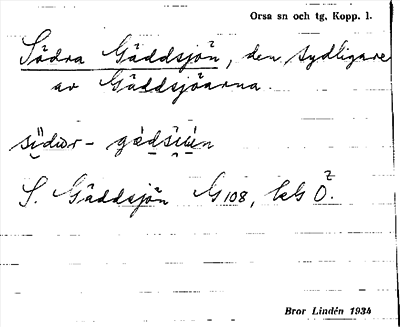 Orsa sn och tg. Kopp. l.
Södra Gäddsjön, den sydligare
av Gäddsjöarna.
S. Gäddsjön G 108, bebO z.
Bror Lindén 1934